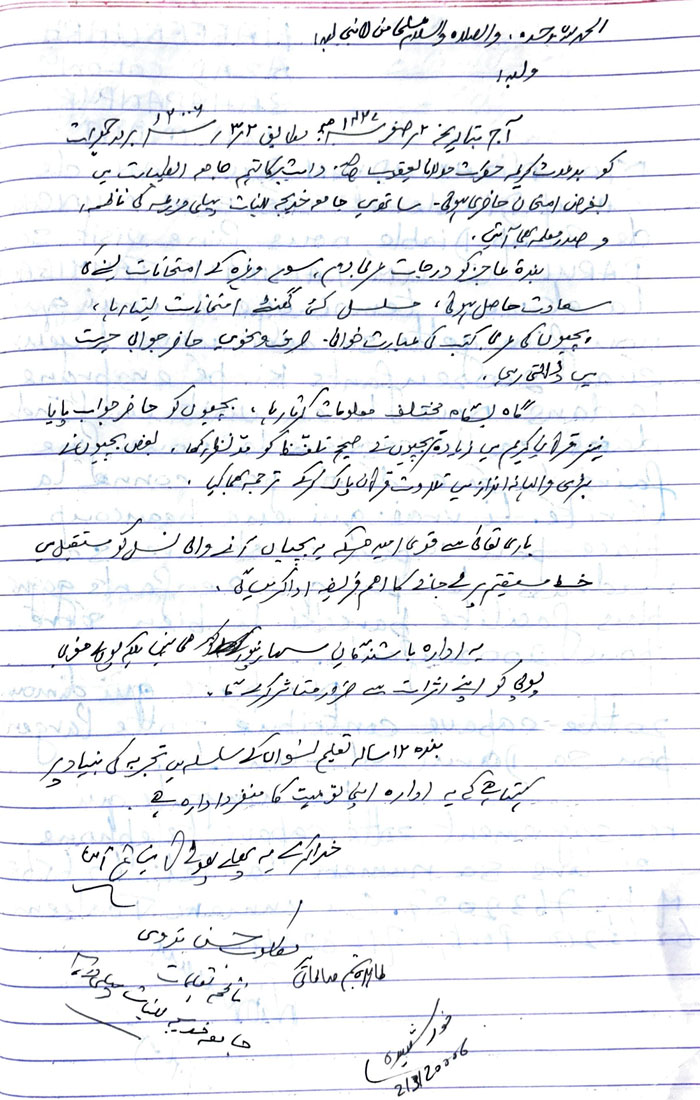 الحمد للہ وحدہ، والصلاۃ والسلام علی من لا نبی بعدہ
وبعد!
آج بتاریخ ۲ صفر ۱۴۲۷ھ مطابق ۲/۳/۲۰۰۶ بروز جمعرات
کو بدعوت کریمہ حضرت مولانا یعقوب صاحب دامت برکاتہم جامعہ الطیبات میں
بغرض امتحان حاضری ہوئی۔ ساتھ میں جامعہ خدیجہ للبنات کی ناظمہ،
و صدر معلمہ بھی آئیں۔
بندہ عاجز کو درجات عربی دوم، سوم وغیرہ کے امتحانات لینے کی
سعادت حاصل ہوئی، مسلسل کئی گھنٹے امتحانات لیتا رہا،
بچیوں کی عربی کتب کی عبارت خوانی۔ صرف و نحوی حاضر جوابی حیرت
میں ڈالتی رہی۔
گاہ بگاہ مختلف معلومات کرتا رہا، بچیوں کو حاضر جواب پایا
نیز قرآن کریم میں زیادہ تر بچیوں نے صحیح تلفظ کو مد نظر رکھا۔ بعض بچیوں نے
بڑی والہانہ انداز میں تلاوت قرآن پاک کرکے ترجمہ بھی کیا۔
باری تعالیٰ سے قوی امید ہے کہ یہ بچیاں آنے والی نسل کو مستقبل میں
خط مستقیم پر لے جانے کا اہم فریضہ ادا کریں گی۔
یہ ادارہ باشندگان سہارنپور کو ہی نہیں بلکہ پورے مغربی
یوپی کو اپنے اثرات سے ضرور متاثر کرے گا۔
بندہ ۱۲ سالہ تعلیم نسواں کے سلسلہ میں تجربہ کی بنیاد پر
کہتا ہے کہ یہ ادارہ اپنی نوعیت کا منفرد ادارہ ہے۔
خدا کرے یہ پھلے پھولے آمین ثم آمین
حسن ندوی
ناظم تعلیمات
جامعہ خدیجہ للبنات
خورشیدہ
2/3/20006